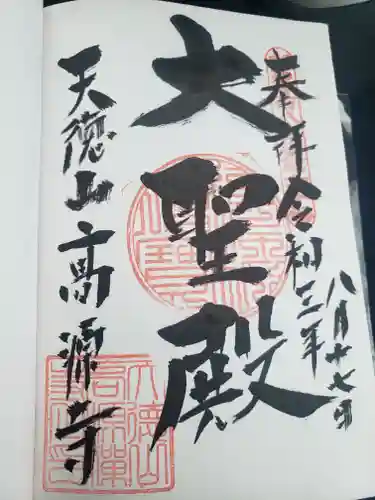 奉拝
令和三年
八月十七日
大聖殿
天徳山
高源寺